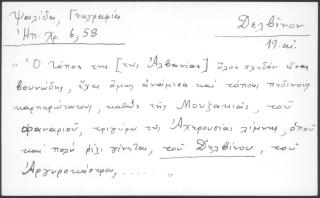 Ψαλίδα, Γεωγραφία
Ἠπ. Χρ. 6, 58
Δελβίνον
19. αἰ.
"Ὁ τόπος της [τῆς Ἀλβανίας] ὅλος σχεδὸν εἶναι
βουνώδης, ἔχει ὅμως ἀνάμεσα καὶ τόπους πεδινοὺς
καρπερωτάτους, καθὼς τῆς Μουζακιᾶς, τοῦ
Φαναριοῦ, τριγύρω τῆς Ἀχερουσίας λίμνης, ὁποῦ
καὶ πολὺ ρίζι γίνεται, τοῦ Δελβίνου, τοῦ
Ἀργυροκάστρου, ......„